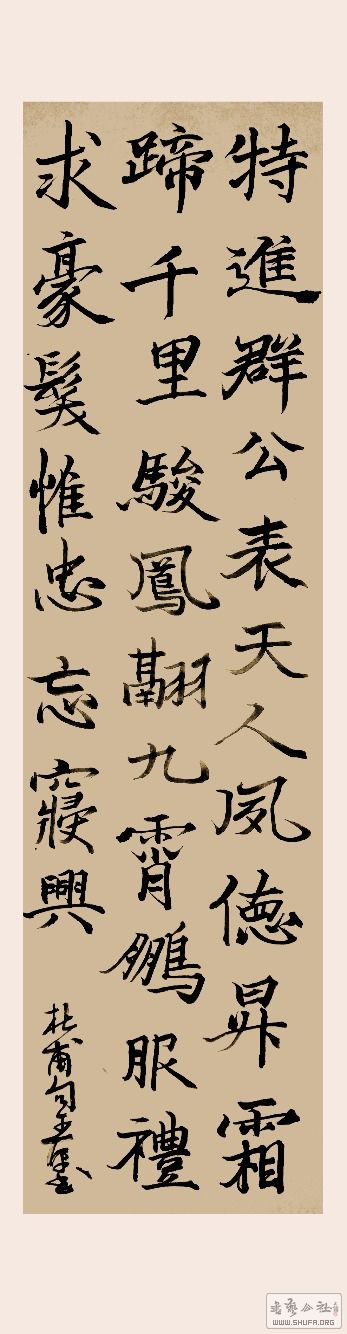 特進群公表天人夙德昇霜
蹄千里駿鳳翮九霄鵬服禮
求豪髮惟忠忘寢興
杜甫句王
書藝公社
WWW.SHUFA.ORG